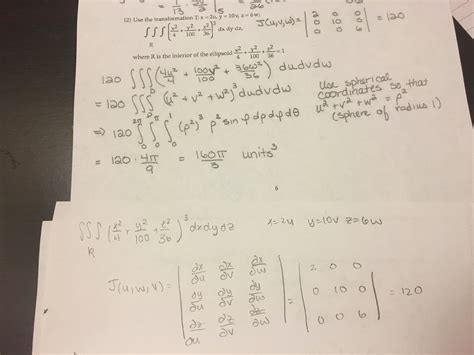 12) Use the transformation T: x = 2u, y = 10v, z = 6w;
J(u,v,w) = | 2 0 0 / 0 10 0 / 0 0 6 | = 120
∭_R [x²/4 + y²/100 + z²/36]³ dx dy dz,
where R is the interior of the ellipsoid x²/4 + y²/100 + z²/36 = 1
120 ∭ (4u²/4 + 100v²/100 + 36w²/36)³ du dv dw
= 120 ∭ (u² + v² + w²)³ du dv dw
Use spherical
coordinates so that
u² + v² + w² = ρ²
(sphere of radius 1)
⇒ 120 ∫₀^2π ∫₀^π ∫₀^1 (ρ²)³ ρ² sin φ dρ dφ dθ
= 120 · 4π/9 = 160π/3 units³
6
∭_R (x²/4 + y²/100 + z²/36)³ dx dy dz x=2u y=10v z=6w
J(u,w,v) = | ∂x/∂u ∂x/∂v ∂x/∂w / ∂y/∂u ∂y/∂v ∂y/∂w / ∂z/∂u ∂z/∂v ∂z/∂w | = | 2 0 0 / 0 10 0 / 0 0 6 | = 120